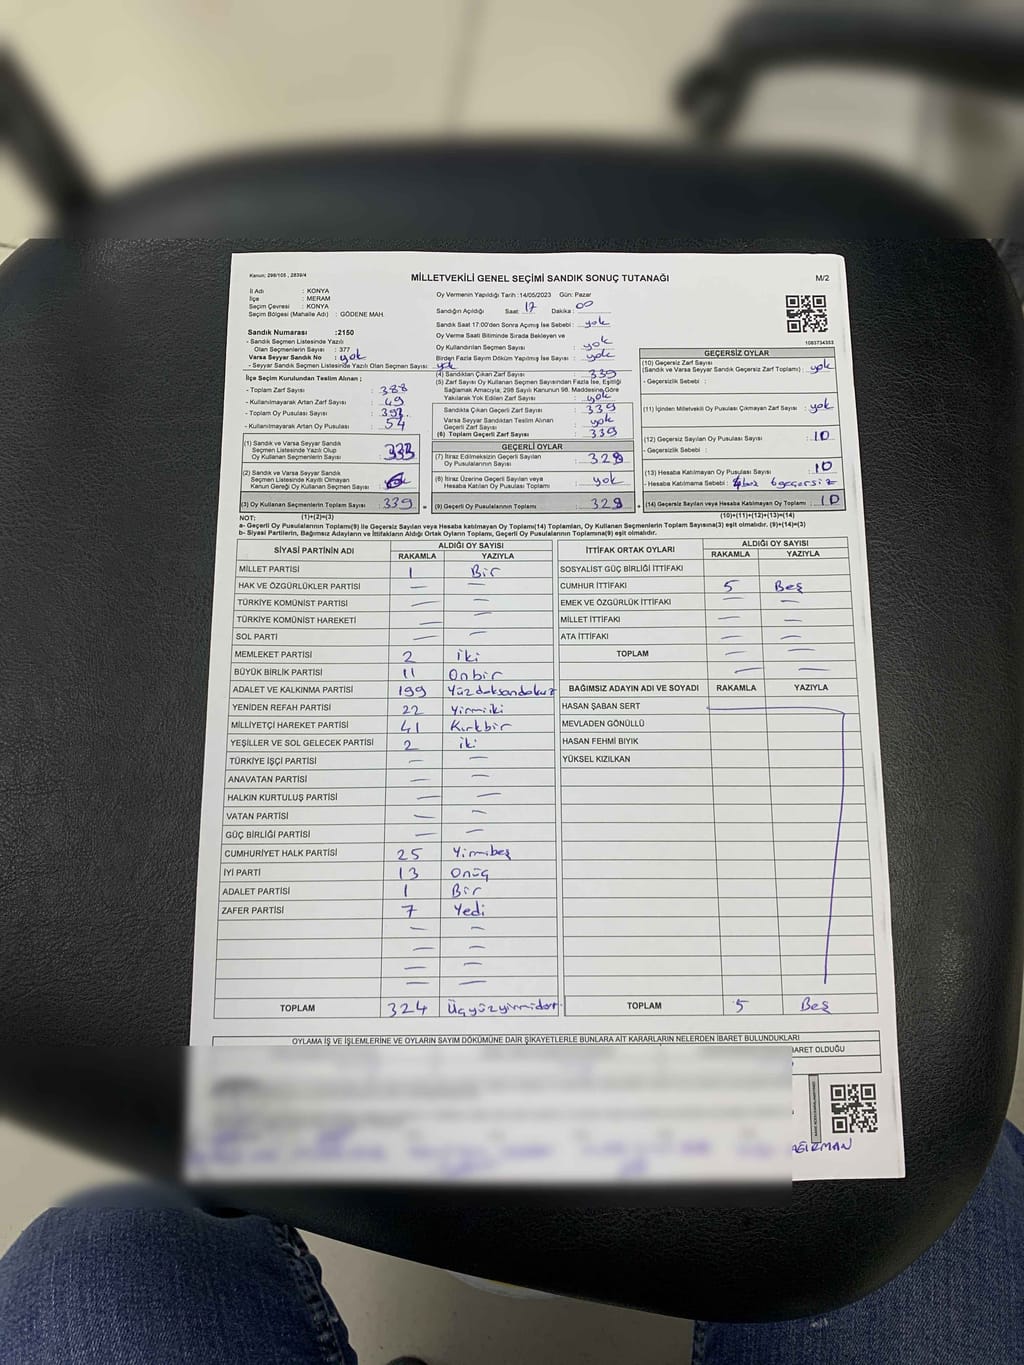 Kanun: 298/105 , 2839/4
MİLLETVEKİLİ GENEL SEÇİMİ SANDIK SONUÇ TUTANAĞI
M/2
İl Adı : KONYA
İlçe : MERAM
Seçim Çevresi : KONYA
Seçim Bölgesi (Mahalle Adı) : GÖDENE MAH.
Sandık Numarası :2150
- Sandık Seçmen Listesinde Yazılı
Olan Seçmenlerin Sayısı : 377
Varsa Seyyar Sandık No : yok
- Seyyar Sandık Seçmen Listesinde Yazılı Olan Seçmen Sayısı : yok
İlçe Seçim Kurulundan Teslim Alınan ;
- Toplam Zarf Sayısı : 388
- Kullanılmayarak Artan Zarf Sayısı : 49
- Toplam Oy Pusulası Sayısı :
- Kullanılmayarak Artan Oy Pusulası : 54
(1) Sandık ve Varsa Seyyar Sandık
Seçmen Listesinde Yazılı Olup
Oy Kullanan Seçmenlerin Sayısı :
(2) Sandık ve Varsa Seyyar Sandık
Seçmen Listesinde Kayıtlı Olmayan
Kanun Gereği Oy Kullanan Seçmen Sayısı :
(3) Oy Kullanan Seçmenlerin Toplam Sayısı : 339
Oy Vermenin Yapıldığı Tarih :14/05/2023 Gün: Pazar
Sandığın Açıldığı Saat: 17 Dakika : 00
Sandık Saat 17:00'den Sonra Açımış İse Sebebi : yok
Oy Verme Saati Bitiminde Sırada Bekleyen ve
Oy Kullandırılan Seçmen Sayısı : yok
Birden Fazla Sayım Döküm Yapılmış İse Sayısı : yok
(4) Sandıktan Çıkan Zarf Sayısı : 339
(5) Zarf Sayısı Oy Kullanan Seçmen Sayısından Fazla İse, Eşitliği
Sağlamak Amacıyla; 298 Sayılı Kanunun 98. Maddesine Göre
Yakılarak Yok Edilen Zarf Sayısı : yok
Sandıkta Çıkan Geçerli Zarf Sayısı : 339
Varsa Seyyar Sandıktan Teslim Alınan
Geçerli Zarf Sayısı : yok
(6) Toplam Geçerli Zarf Sayısı : 339
GEÇERLİ OYLAR
(7) İtiraz Edilmeksizin Geçerli Sayılan
Oy Pusulalarının Sayısı :
(8) İtiraz Üzerine Geçerli Sayılan veya
Hesaba Katılan Oy Pusulası Toplamı : yok
(9) Geçerli Oy Pusulalarının Toplamı :
1083734353
GEÇERSİZ OYLAR
(10) Geçersiz Zarf Sayısı
(Sandık ve Varsa Seyyar Sandık Geçersiz Zarf Toplamı) : yok
- Geçersizlik Sebebi :
(11) İçinden Milletvekili Oy Pusulası Çıkmayan Zarf Sayısı : yok
(12) Geçersiz Sayılan Oy Pusulası Sayısı : 10
- Geçersizlik Sebebi :
(13) Hesaba Katılmayan Oy Pusulası Sayısı : 10
- Hesaba Katılmama Sebebi : 6 geçersiz
(14) Geçersiz Sayılan veya Hesaba Katılmayan Oy Toplamı : 10
NOT: (1)+(2)=(3) (10)+(11)+(12)+(13)=(14)
a- Geçerli Oy Pusulalarının Toplamı(9) ile Geçersiz Sayılan veya Hesaba katılmayan Oy Toplamı(14) Toplamları, Oy Kullanan Seçmenlerin Toplam Sayısına(3) eşit olmalıdır. (9)+(14)=(3)
b- Siyasi Partilerin, Bağımsız Adayların ve İttifakların Aldığı Ortak Oyların Toplamı, Geçerli Oy Pusulalarının Toplamına(9) eşit olmalıdır.
SİYASİ PARTİNİN ADI ALDIĞI OY SAYISI
RAKAMLA YAZIYLA
MİLLET PARTİSİ 1 Bir
HAK VE ÖZGÜRLÜKLER PARTİSİ — —
TÜRKİYE KOMÜNİST PARTİSİ — —
TÜRKİYE KOMÜNİST HAREKETİ — —
SOL PARTİ — —
MEMLEKET PARTİSİ 2 iki
BÜYÜK BİRLİK PARTİSİ 11 Onbir
ADALET VE KALKINMA PARTİSİ 199 Yüzdoksandokuz
YENİDEN REFAH PARTİSİ 22 Yirmiiki
MİLLİYETÇİ HAREKET PARTİSİ 41 Kırkbir
YEŞİLLER VE SOL GELECEK PARTİSİ 2 iki
TÜRKİYE İŞÇİ PARTİSİ — —
ANAVATAN PARTİSİ — —
HALKIN KURTULUŞ PARTİSİ — —
VATAN PARTİSİ — —
GÜÇ BİRLİĞİ PARTİSİ — —
CUMHURİYET HALK PARTİSİ 25 Yirmibeş
İYİ PARTİ 13 Onüç
ADALET PARTİSİ 1 Bir
ZAFER PARTİSİ 7 Yedi
— —
— —
— —
— —
TOPLAM 324 Üçyüzyirmidört
İTTİFAK ORTAK OYLARI ALDIĞI OY SAYISI
RAKAMLA YAZIYLA
SOSYALİST GÜÇ BİRLİĞİ İTTİFAKI
CUMHUR İTTİFAKI 5 Beş
EMEK VE ÖZGÜRLÜK İTTİFAKI — —
MİLLET İTTİFAKI — —
ATA İTTİFAKI — —
TOPLAM — —
— —
BAĞIMSIZ ADAYIN ADI VE SOYADI RAKAMLA YAZIYLA
HASAN ŞABAN SERT
MEVLADEN GÖNÜLLÜ
HASAN FEHMİ BIYIK
YÜKSEL KIZILKAN
TOPLAM 5 Beş
OYLAMA İŞ VE İŞLEMLERİNE VE OYLARIN SAYIM DÖKÜMÜNE DAİR ŞİKAYETLERLE BUNLARA AİT KARARLARIN NELERDEN İBARET BULUNDUKLARI
BARET OLDUĞU